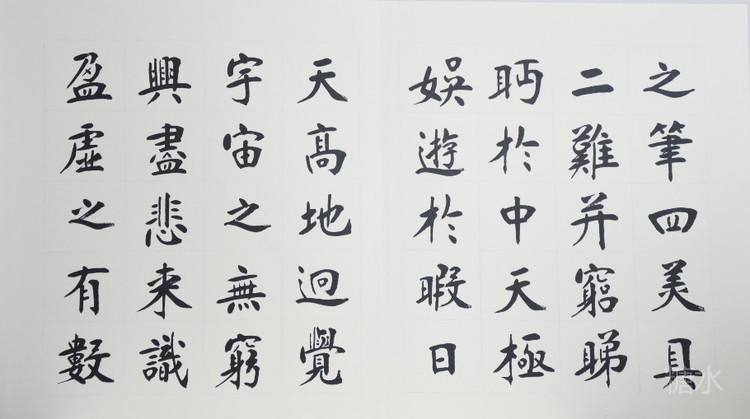 之筆四美具
二難并窮睇
眄於中天極
娛遊於暇日
天高地迥覺
宇宙之無窮
興盡悲來識
盈虛之有數
糖水